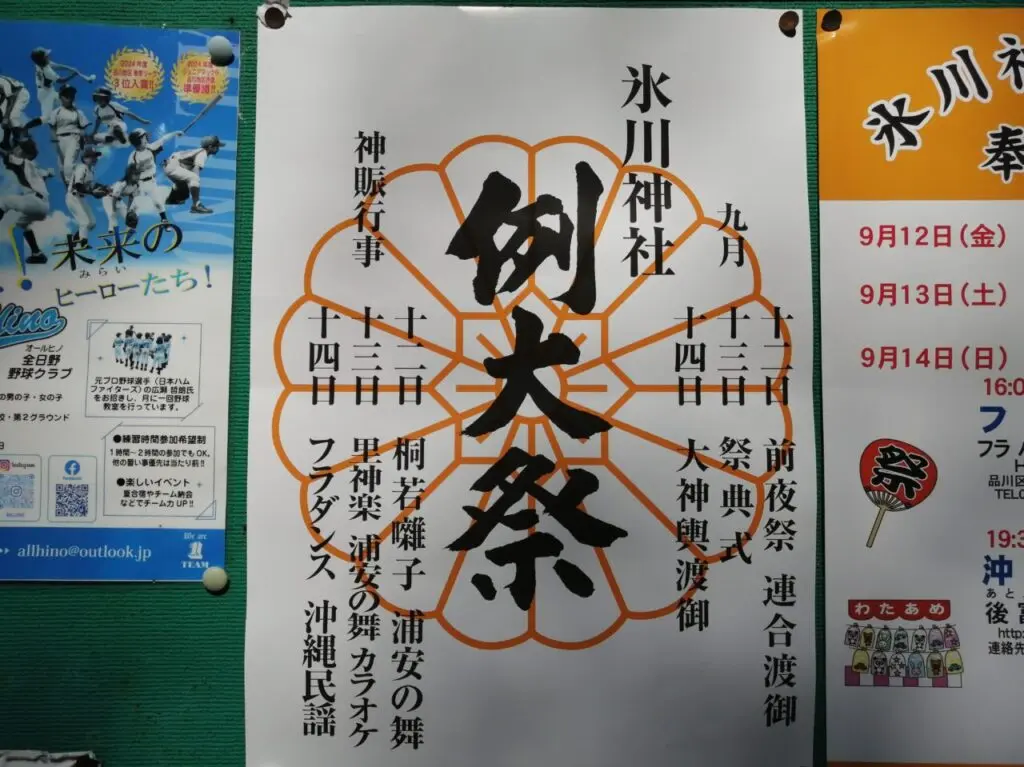 2024年度
3位入賞!!
準優勝!!
未来の
みらい
ヒーローたち!
オールヒノ
全日野
野球クラブ
の男の子・女の子
校・第2グラウンド
元プロ野球選手(日本ハム
ファイターズ)の広瀬 哲朗氏
をお招きし、月に一回野球
教室を行っています。
●練習時間参加希望制
1時間〜2時間の参加でもOK。
他の習い事優先は当たり前!!
●楽しいイベント
夏合宿やチーム納会
などでチーム力UP!!
Instagram
Facebook
allhino@outlook.jp
We are
1
TEAM
氷川神社
例大祭
九月
十二日 前夜祭 連合渡御
十三日 祭典式
十四日 大神輿渡御
神賑行事
十二日 桐若囃子 浦安の舞
十三日 里神楽 浦安の舞 カラオケ
十四日 フラダンス 沖縄民謡
氷川神
奉
9月12日(金)
9月13日(土)
9月14日(日)
16:0
フ
フラ ハ
品川区
TEL
19:3
沖
あと
後
http
連絡先
祭
わたあめ